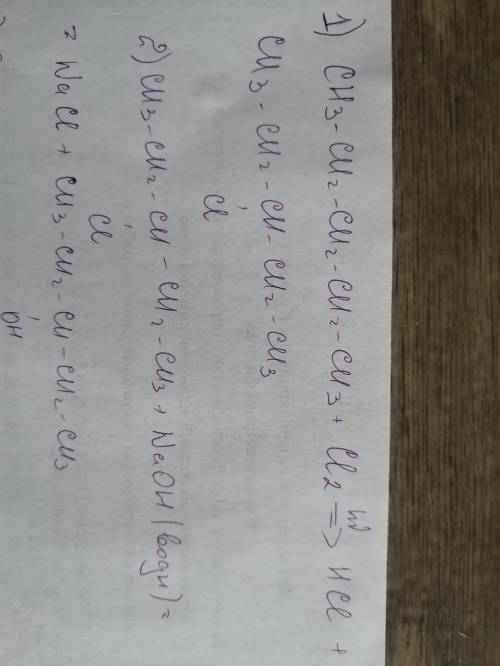 1) CH3-CH2-CH2-CH2-CH3 + Cl2 ⇒ HCl +
hν
CH3-CH2-CH-CH2-CH3
Cl
2) CH3-CH2-CH-CH2-CH3 + NaOH (водн) =
Cl
= NaCl + CH3-CH2-CH-CH2-CH3
OH